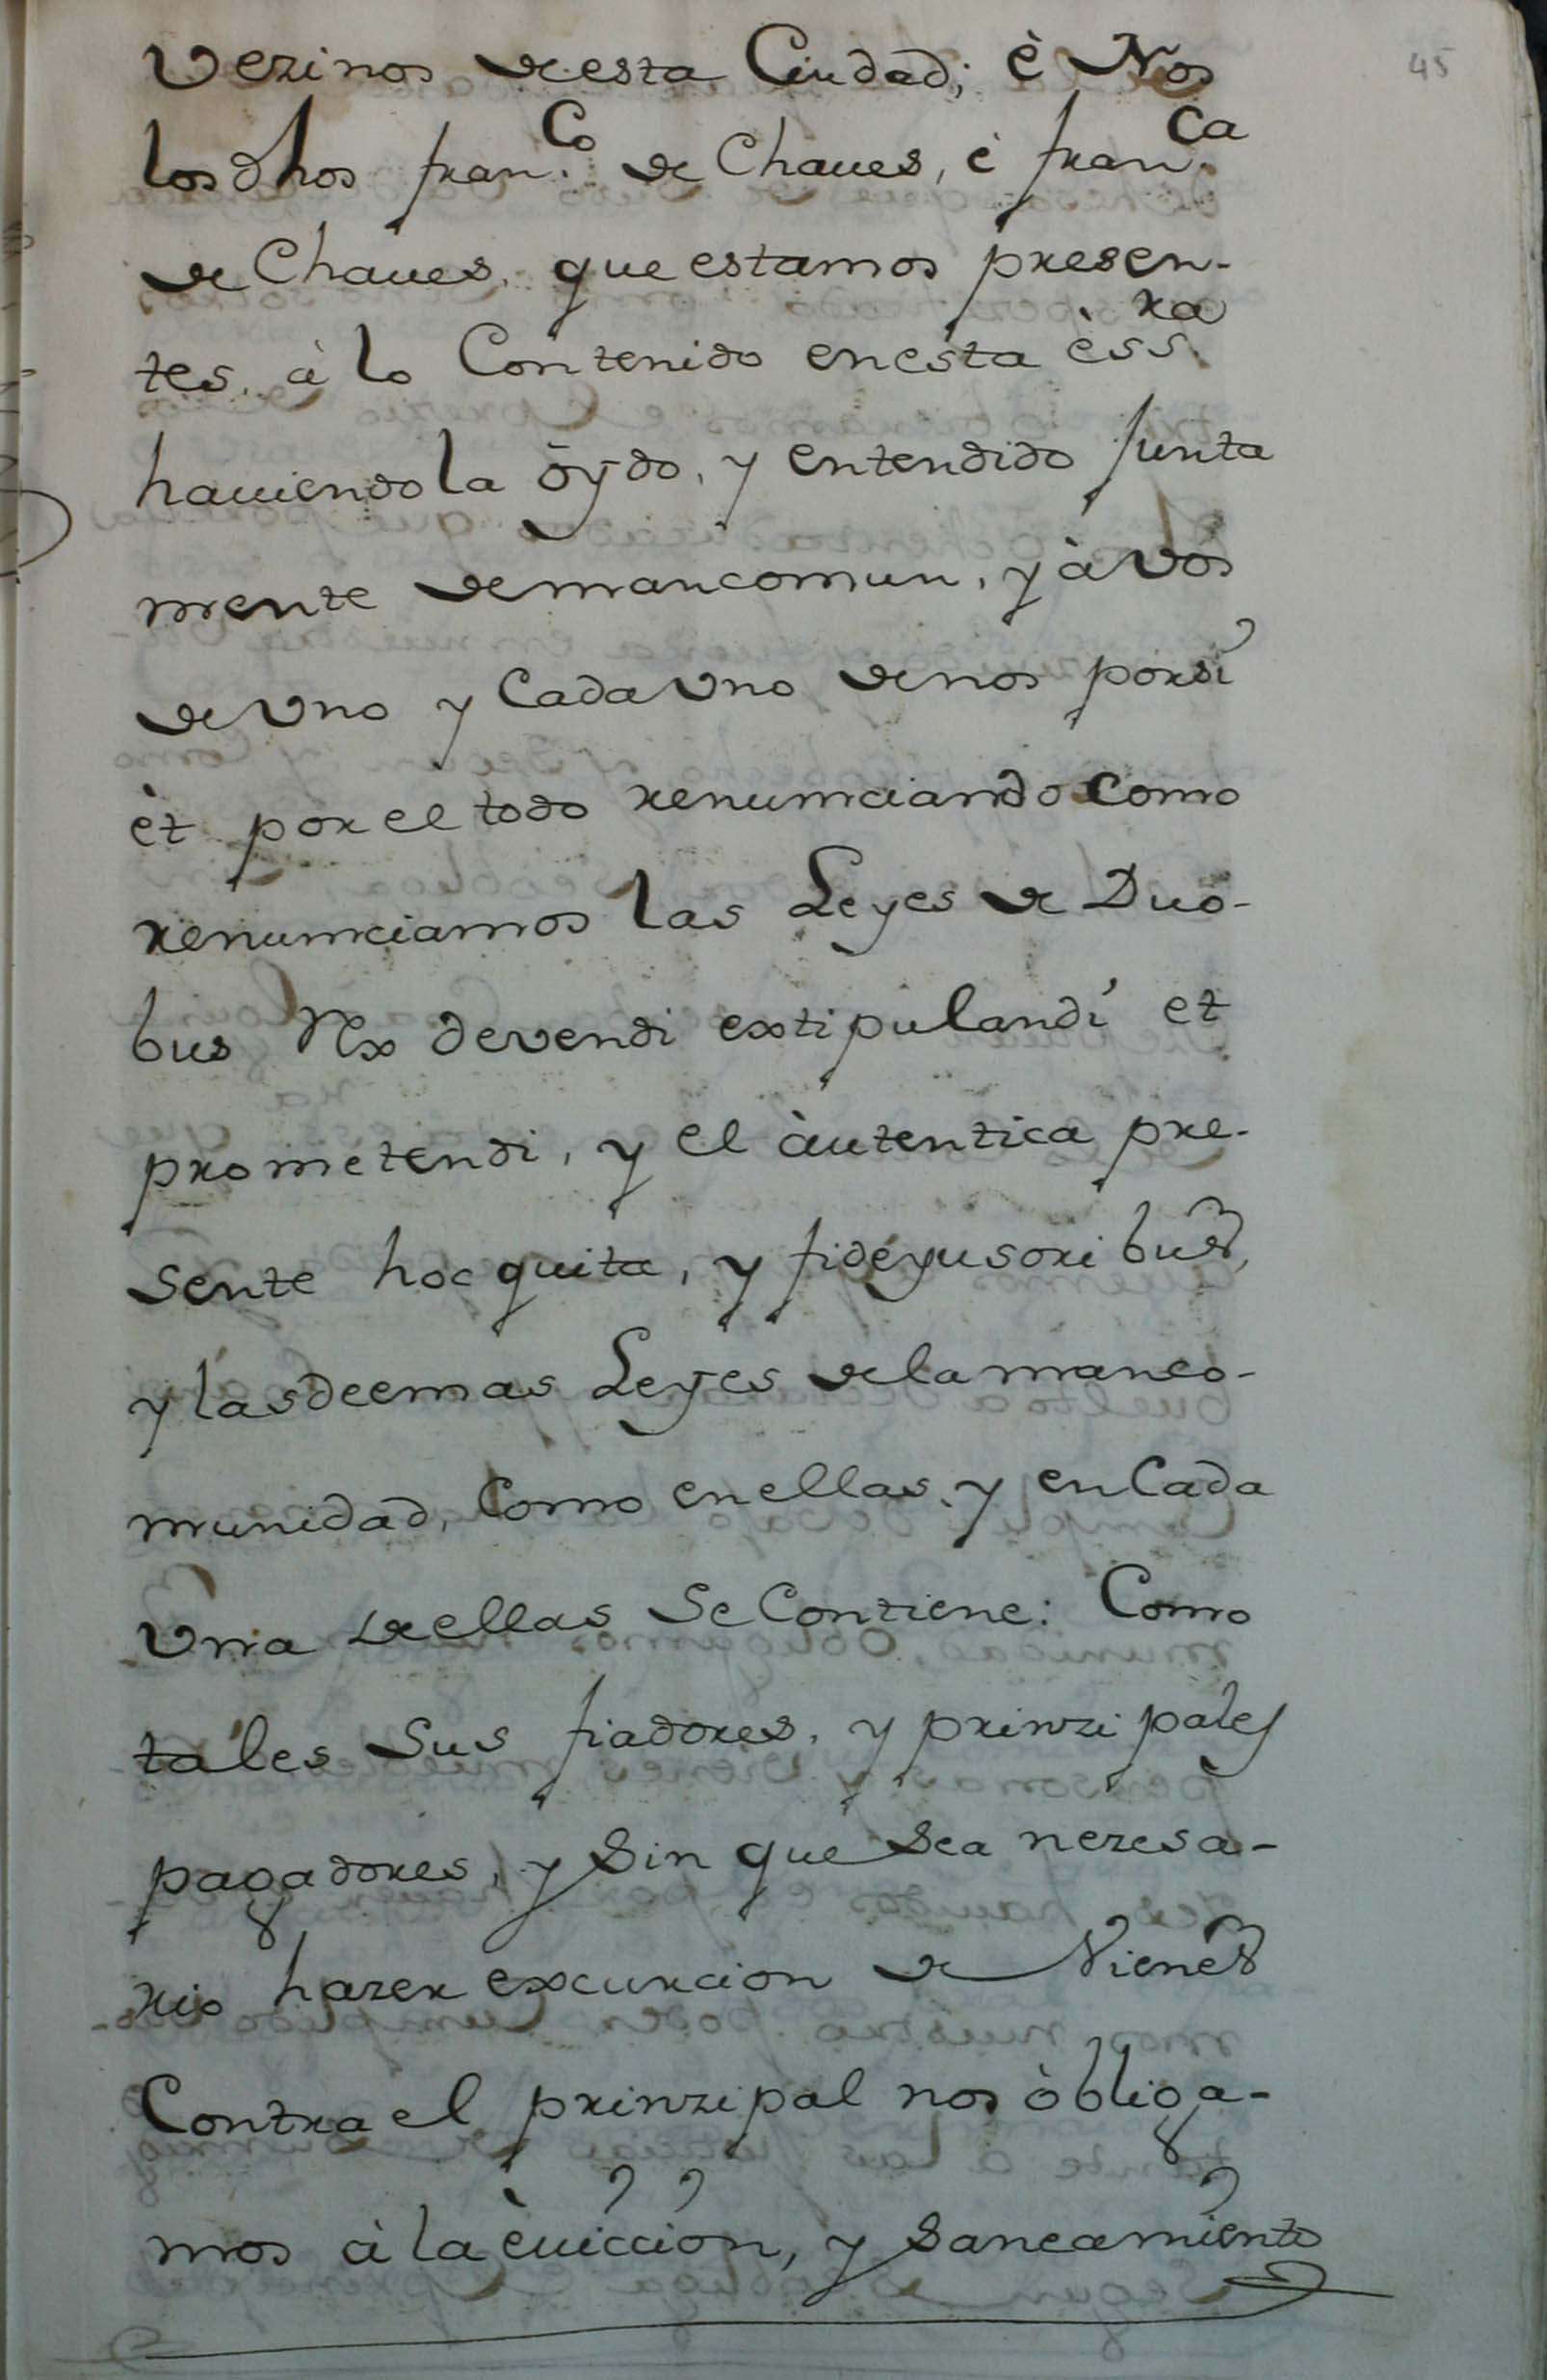 45
Vezinos de esta Ciudad; è Nos
los dhos fran.co de Chaues, è fran.ca
de Chaues, que estamos presen-
tes. à lo Contenido en esta èss.ra
hauiendola öÿdo, y entendido Junta
mente de mancomun, y à vòs
de Vno y Cada Vno de nos por si
èt por el todo renumciamdo como
renumciamos las Leyes de Duo-
bus Rx devendi extipulandi et
prometendi, y el àutentica pre-
sente hoc quita, y fideyusoribus,
y las deemas Leyes de la manco-
munidad, Como en ellas, y en Cada
Vna de ellas Se Contiene: Como
tales Sus fiadores, y prinzipales
pagadores, y Sin que Sea nezesa-
rio hazer excurcion de Vienes
Contra el prinzipal nos òbliga-
mos à la èuiccion, y Saneamiento